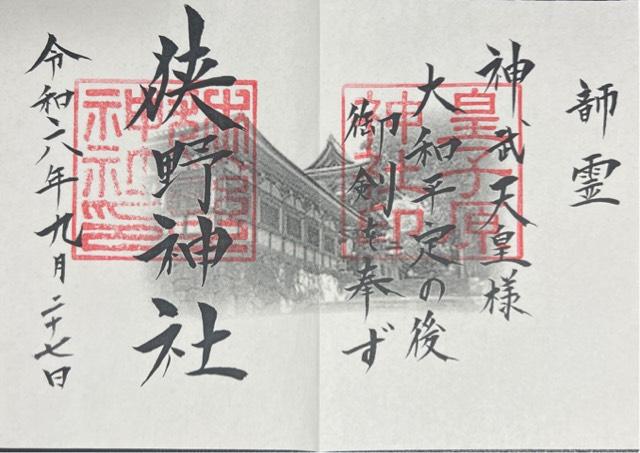 韴霊
神武天皇様
大和平定の後
御剣を奉ず
皇子原
神社印
狭野神社
令和六年九月二十七日